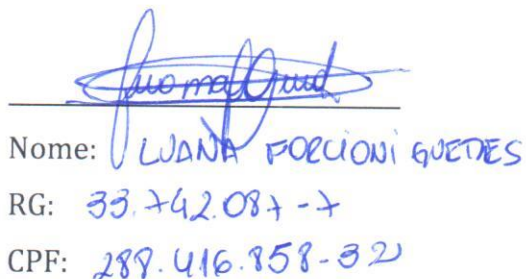 Nome: LUANA FORCIONI GUEDES
RG: 33.742.087-7
CPF: 288.416.858-32